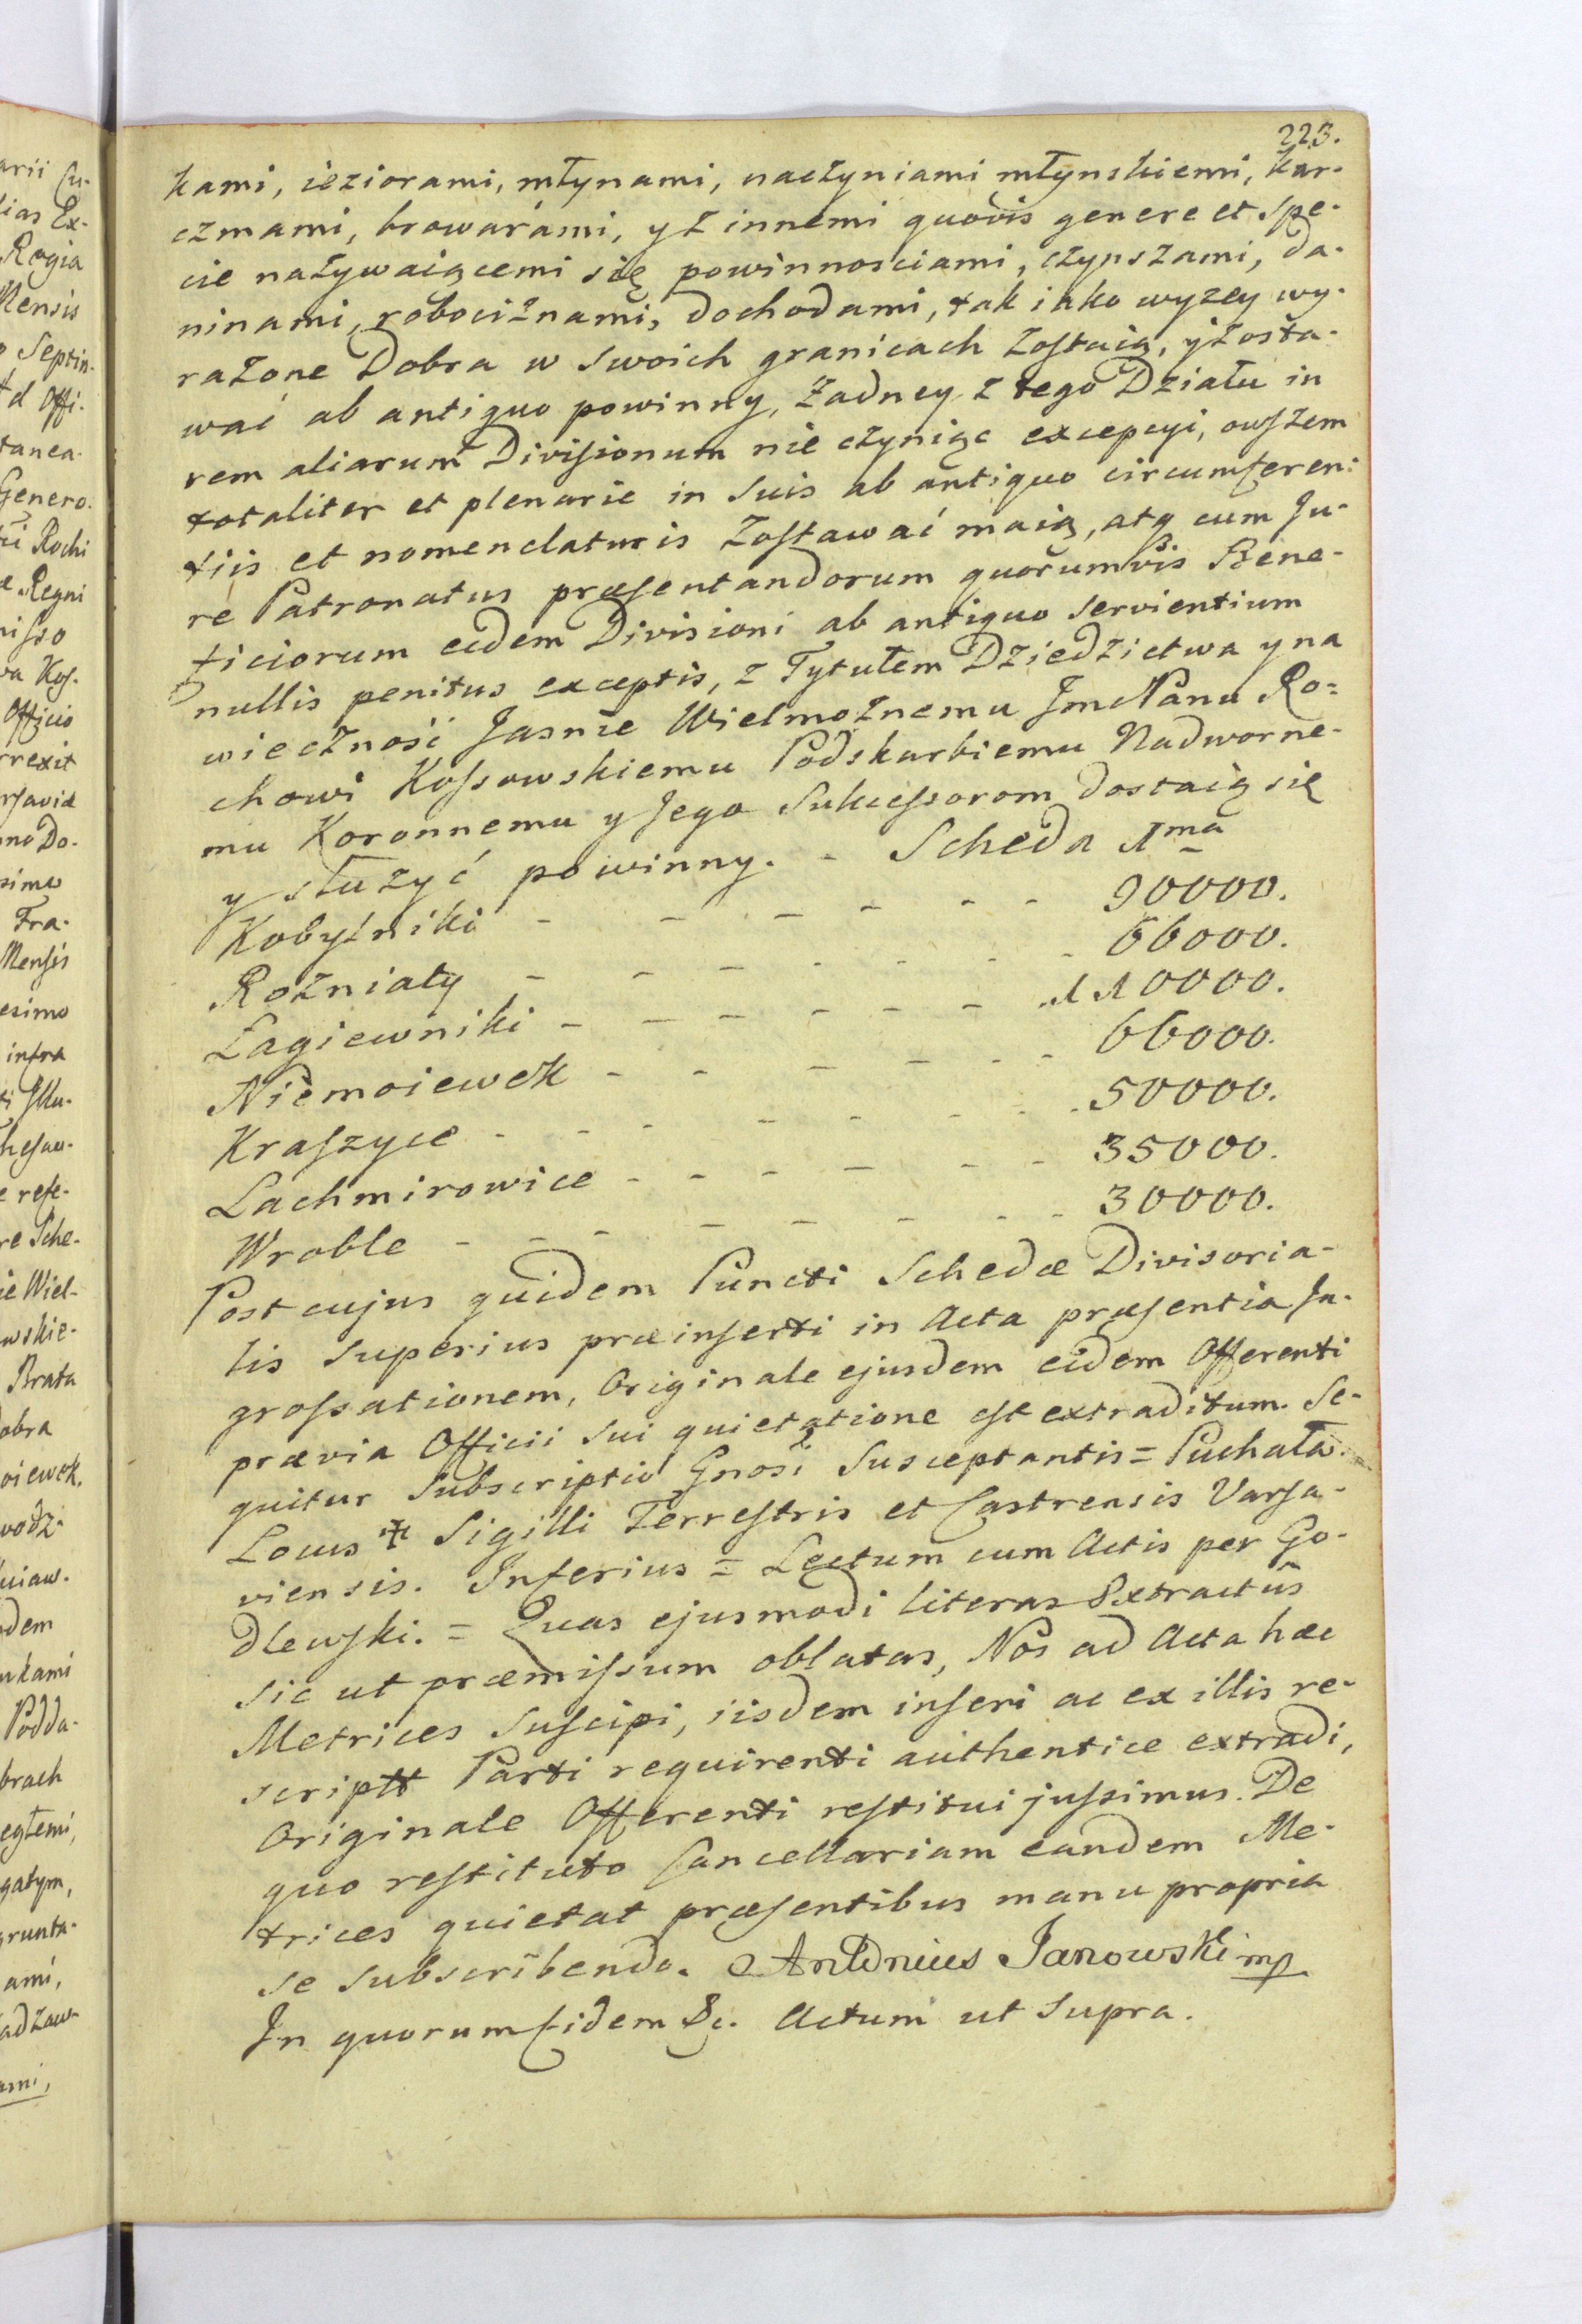 223.
kami, ieziorami, młynami, naczyniami młynskiemi, kar-
czmami, browarámi, y z innemi quovis genere et spe-
cie nazywaiącemi się powinnosciami, czynszami, da-
ninami, robociznami, dochodami, tak iako wyzey wy-
rażone Dobra w swoich granicach zostaią, y zosta-
wać ab antiquo powinny, żadney z tego Działu in
rem aliarum Divisionum nie czyniąc excepcyi, owszem
totaliter et plenarie in suis ab antiquo circumferen-
tiis et nomenclaturis zostawać maią, atq cum Ju-
re Patronatus præsentandorum quorumvis Bene-
ficiorum eidem Divisioni ab antiquo servientium
nullis penitus exceptis, z Tytułem Dziedzictwa y na
wieczność Jasnie Wielmożnemu JmcPanu Ro=
chowi Kossowskiemu Podskarbiemu Nadworne-
mu Koronnemu y Jego Sukcessorom dostaią się
y służyć powinny. - Scheda 1ma
Kobylniki - - - - - - 90000.
Rożniaty - - - - - - - 66000.
Łagiewniki - - - - - - 110000.
Niemoiewek - - - - - - 66000.
Kraszyce - - - - - - - 50000.
Lachmirowice - - - - - - 35000.
Wroble - - - - - - - - 30000.
Post cujus quidem Puncti Schedæ Divisoria-
lis superius præinserti in Acta præsentia In-
grossationem, Originale ejusdem eidem Offerenti
prævia Officii sui quietatione est extraditum. Se-
quitur Subscriptio Gnosi Susceptantis = Puchała.
Locus ✠ Sigilli Terrestris et Castrensis Varsa-
viensis. Inferius = Lectum cum Actis per Go-
dlewski. = Quas ejusmodi literas Extractus
sic ut præmissum oblatas, Nos ad Acta hæc
Metrices suscipi, iisdem inseri ac ex illis re-
scriptt Parti requirenti authentice extradi,
Originale Offerenti restitui jussimus. De
quo restituto Cancellariam eandem Me-
trices quietat præsentibus manu propria
se subscribendo. Antonius Janowski mp
In quorum fidem &c. Actum ut supra.